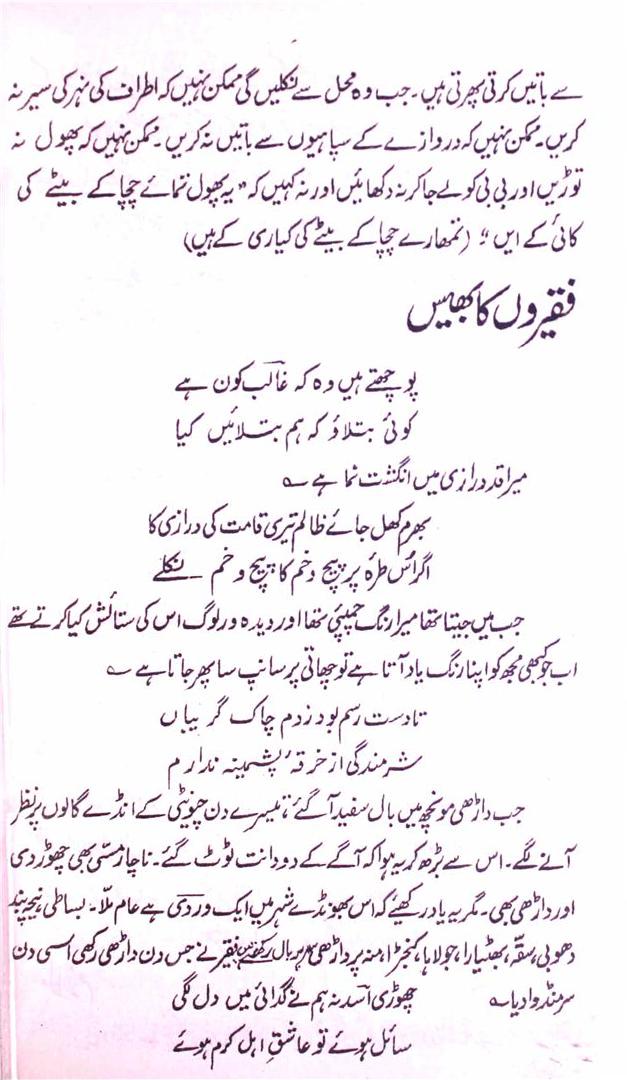 سے باتیں کرتی پھرتی ہیں۔ جب وہ محل سے نکلیں گی ممکن نہیں کہ اطراف کی نہر کی سیر نہ
کریں۔ ممکن نہیں کہ دروازے کے سپاہیوں سے باتیں نہ کریں۔ ممکن نہیں کہ پھول نہ
توڑیں اور بی بی کو لے جا کر نہ دکھائیں اور نہ کہیں کہ "یہ پھول تمائے چچا کے بیٹے کی
کائی کے ایں"؛ (تمھارے چچا کے بیٹے کی کیاری کے ہیں)
فقیروں کا بھیس
پوچھتے ہیں وہ کہ غالب کون ہے
کوئی بتلاؤ کہ ہم بتلائیں کیا
میرا قد درازی میں انگشت نما ہے ؎
بھرم کھل جائے ظالم تیری قامت کی درازی کا
اگر اُس طرۂ پر پیچ و خم کا پیچ و خم نکلے
جب میں جیتا تھا میرا رنگ چمپئی تھا اور دیدہ ور لوگ اس کی ستائش کیا کرتے تھے
اب جو کبھی مجھ کو اپنا رنگ یاد آتا ہے تو چھاتی پر سانپ سا پھر جاتا ہے ؎
تا دست رسم بود زدم چاک گریباں
شرمندگی از خرقۂ پشمینہ ندارم
جب داڑھی مونچھ میں بال سفید آ گئے، تیسرے دن چونٹی کے انڈے گالوں پر نظر
آنے لگے۔ اس سے بڑھ کر یہ ہوا کہ آگے کے دو دانت ٹوٹ گئے۔ ناچار مسّی بھی چھوڑ دی
اور داڑھی بھی۔ مگر یہ یاد رکھئے کہ اس بھونڈے شہر میں ایک وردی ہے عام ملّا۔ بساطی نیچہ بند
دھوبی، سقّہ، بھٹیارا، جولاہا، کنجڑا، منہ پر داڑھی سر پر بال رکھتے ہیں فقیر نے جس دن داڑھی رکھی اسی دن
سر منڈوا دیا ؎ چھوڑی اسد نہ ہم نے گدائی میں دل لگی
سائل ہوئے تو عاشقِ اہل کرم ہوئے